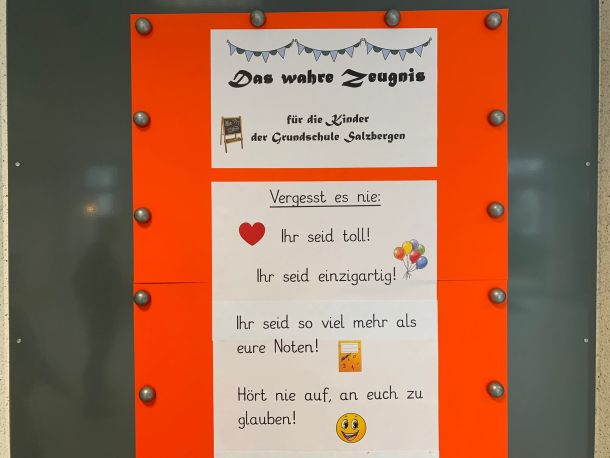 Das wahre Zeugnis
für die Kinder
der Grundschule Salzbergen
Vergesst es nie:
Ihr seid toll!
Ihr seid einzigartig!
Ihr seid so viel mehr als
eure Noten!
Hört nie auf, an euch zu
glauben!